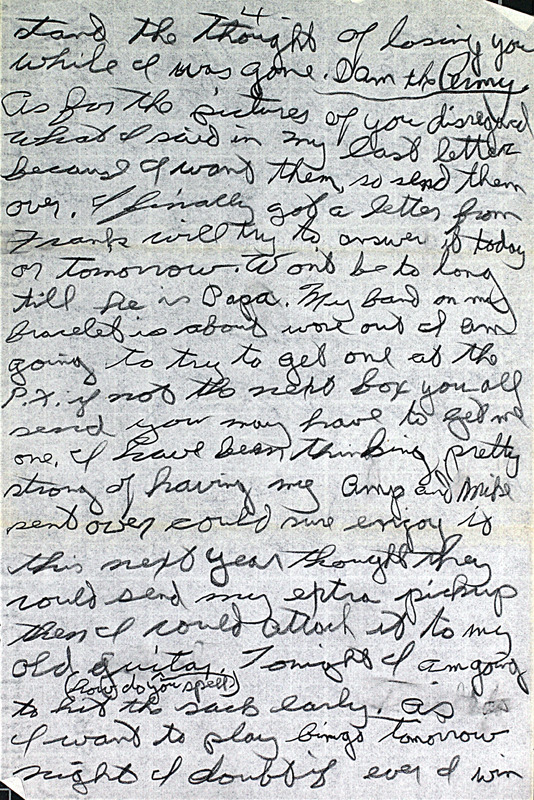 4
stand the thought of losing you
while I was gone. Dam the Army.
As for the pictures of you disregard
what I said in my last letter
because I want them, so send them
over. I finally got a letter from
Frank will try to answer it today
or tomorrow. Won't be to long
till he is Papa. My band on my
bracelet is about wore out I am
going to try to get one at the
P.X. if not the next box you all
send you may have to get me
one. I have been thinking pretty
strong of having my Amp and Mike
sent over could sure enjoy it
this next year thought they
could send my extra pickup
then I could attach it to my
old guitar. Tonight I am going
(how do you spell)
to hit the sack early. as
I want to play bingo tomorrow
night I doubt if ever I win